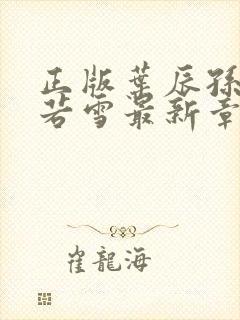 正版葉辰孫
若雪最新章
崔龍海